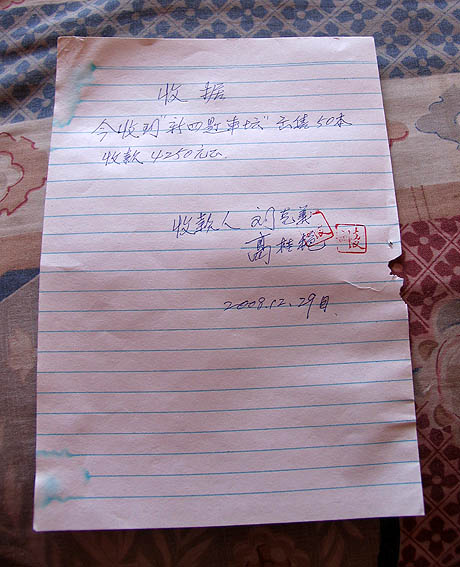 收据
今收到"新四墅车坛"出售50本
收款4250元正
收款人 刘艺義
高桂艳
2009.12.29日